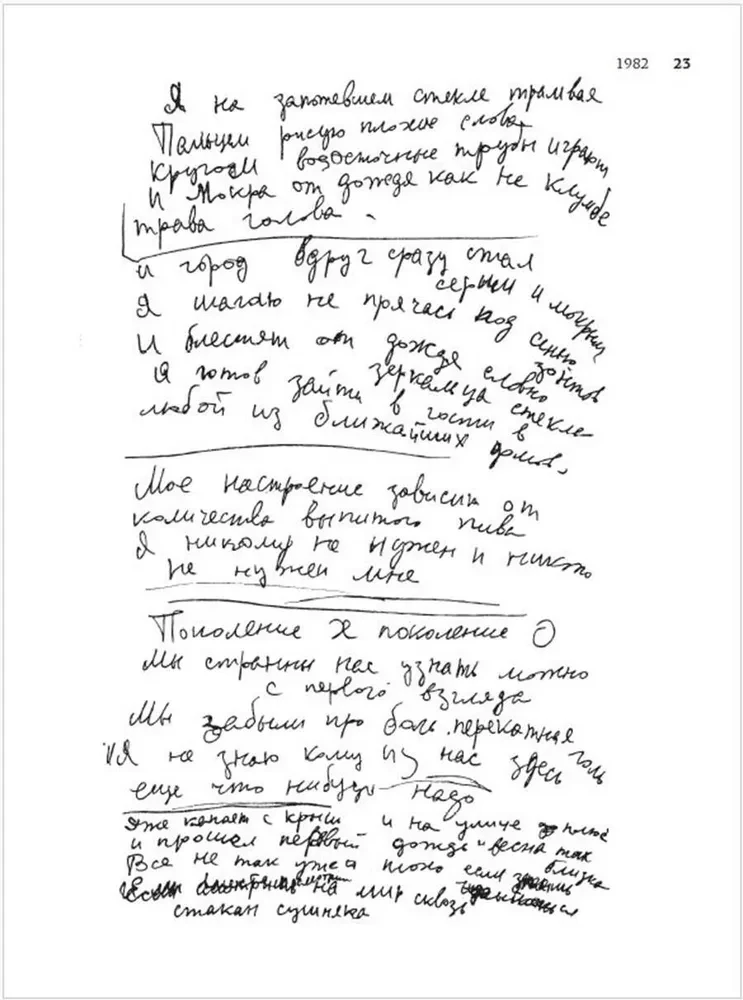 1982 23
Я на запотевшем стекле трамвая
Пальцем рисую плохие слова
Кругом водосточные трубы играют
И мокра от дождя как не клумбе
трава голова.
и город вдруг сразу стал
серым и мокрым
Я шагаю не прячась под сенью зонтов
И блестят от дождя словно
зеркальца стекле-
Я готов зайти в гости в
любой из ближайших домов.
Мое настроение зависит от
количества выпитого пива
Я никому не нужен и никто
не нужен мне
Поколение X поколение О
Мы странны нас узнать можно
с первого взгляда
Мы забыли про боль. перекатная голь
Я не знаю кому из нас здесь
еще что нибудь надо
Уже капает с крыш и на улице плюс
и прошел первый дождь и весна так
близка
Все не так уже и плохо если
на мир сквозь
стакан сушняка